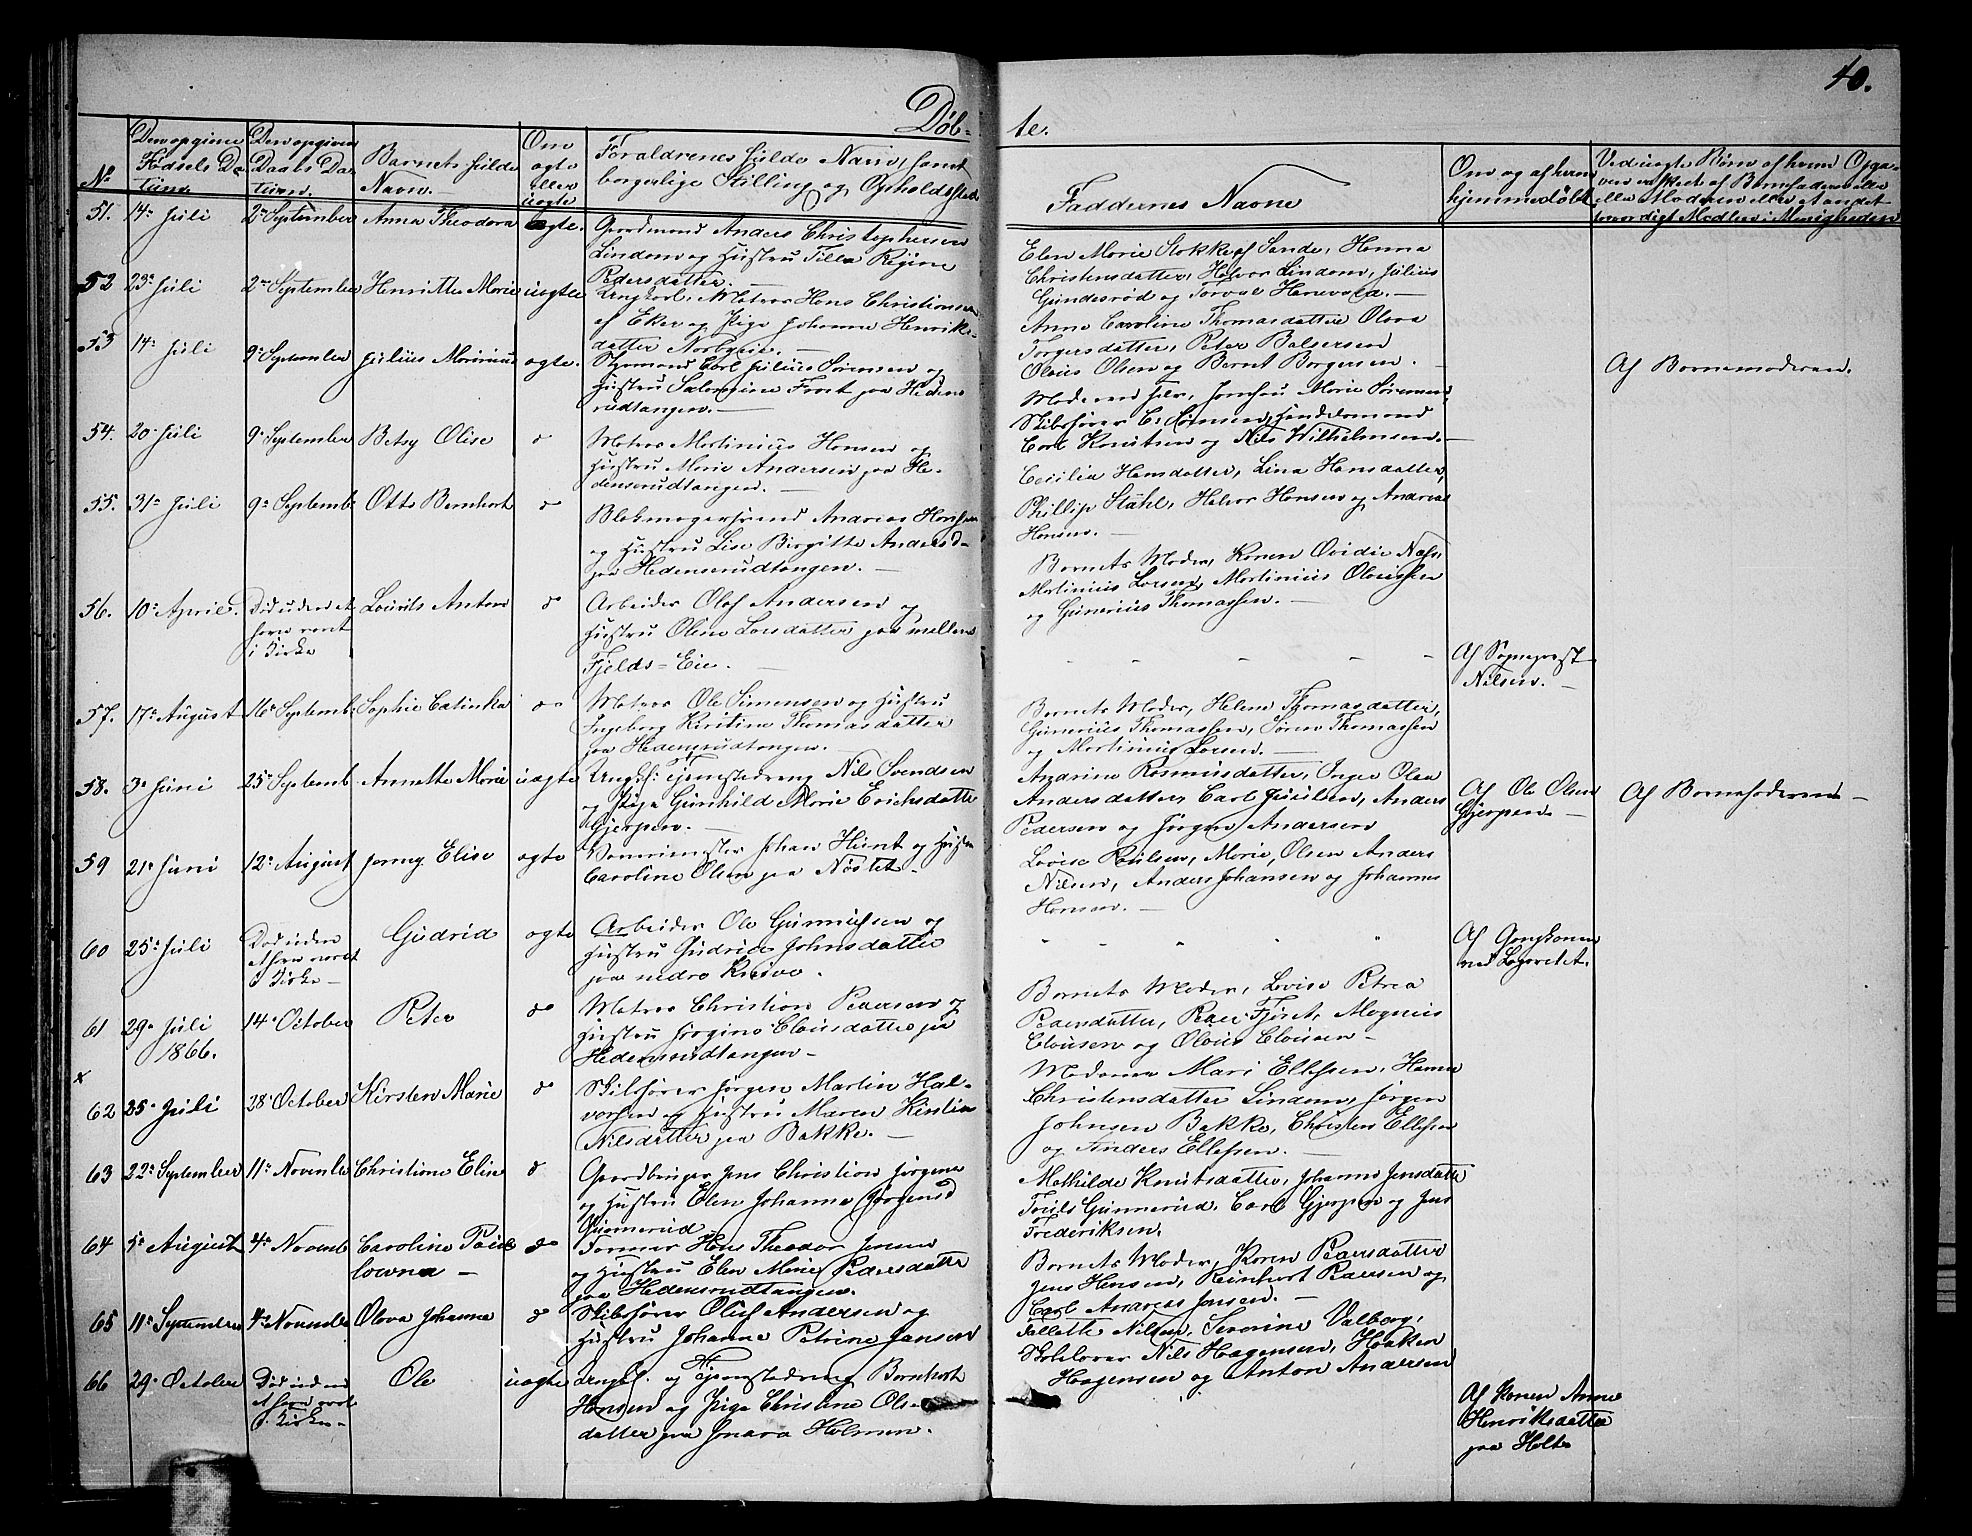 40.
Døb-
te.
No
Den opgivne
Fødsels Da
tum
Den opgivne
Daabs Da
tum.
Barnets fulde
Navn.
Om
ægte
eller
uægte
Foraldrenes fulde Navn, samt
borgerlige Stilling og Opholdssted
Faddernes Navne
Om og af hvem
hjemmedøbt
51. 14de Juli 2den September Anna Theodora ægte. Gaardmand Anders Christophersen
Lindem og Hustru Tilla Regine
Pedersdatter.
Elen Marie Stokke af Sande, Hanna
Christensdatter, Halvor Lindem, Julius
Gundesrød og Torval Hanevold.
52 23de Juli 2den September Henriette Marie uægte Ungkarl, Matros Hans Christiansen
af Eker og Pige Johanne Henriks-
datter
Anne Caroline Thomasdatter Olava
Torgersdatter, Peter Balsersen
Olaus Olsen og Bernt Borgersen.
Af Barnemoderen.
53 14de Juli 9de September Julius Marinius ægte. Styrmand Carl Julius Sørensen og
Hustru Salomine Frost paa Hedens
rudtangen.
Moderen selv, Jomfru Marie Sørensen,
Skibsfører C. Sørensen, Handelsmand
Carl Knutsen og Nils Wilhelmsen.
54. 20de Juli 9de September Betsy Olise do Matros Martinius Hansen og
Hustru Marie Andersen paa He-
densrudtangen.
Cecilia Hansdatter, Lina Hansdatter,
Phillip Ståhl, Halvor Hansen og Andreas
Hansen.
55. 31te Juli 9de Septemb: Otto Bernhart do Blokmagersvend Andreas Hansen
og Hustru Lise Birgitte Andersd-
paa Hedensrudtangen.
Barnets Moder, Karen Ovidie Næss,
Martinius Larsen, Martinius Olaussen
og Gunerius Thomassen.
56. 10de April. Død uden at
have været
i Kirke
Laurits Anton do Arbeider Olaf Andersen og
Hustru Oline Larsdatter paa mellem
Fjelds-Eie.
Af Sogneprest
Nilsen.
57. 17de August 16de Septemb: Sophie Catinka do Matros Ole Simensen og Hustru
Ingeborg Kirstine Thomasdatter
paa Hedensrudtangen.
Barnets Moder, Helene Thomasdatter,
Gunerius Thomassen, Søren Thomassen
og Martinius Larsen.
58. 3de Juni 25de Septemb Annette Marie uægte Ungk: Tjenestedreng Nils Svendsen
og Pige Gunhild Marie Erichsdatter
Gjerpen.
Andrine Rasmusdatter, Inger Olea
Andersdatter, Carl Paulsen, Anders
Pedersen og Jørgen Andersen
Af Ole Olsen
Gjerpen.
Af Barnefaderen
59 21de Juni 12te August Jenny Elise ægte Johan Hunt og Hustru
Caroline Olsen paa Nøstet.
Lovise Paulsen, Marie Olsen Anders
Nilsen, Anders Johansen og Johannes
Hansen.
60 25de Juli Død uden
at have været
i Kirke
Gudrid ægte Arbeider Ole Gunnulfsen og
Hustru Gudrid Johnsdatter
paa nedre
Af Gangkonen
ved Lazarettet.
61 29de Juli
1866.
14de October Peter do Matros Christian Pedersen og
Hustru Jørgine Clausdatter paa
Hedensrudtangen
Barnets Moder, Lovise Petrea
Pedersdatter, Peder Fjøset, Magnus
Clausen og Olaus Clausen
x
62 25de Juli 28de October Kirsten Marie do Skibsfører Jørgen Martin Hal-
vorsen og Hustru Maren Kirstine
Nilsdatter paa Bakke.
Madame Mari Ellefsen, Hanna
Christensdatter Lindem, Jørgen
Johnsen Bakke, Christen Ellefsen
og Anders Ellefsen.
63 22de September 11te Novembr Christiane Elise do Gaardbruger Jens Christian Jørgens
og Hustru Elen Johanne Jørgensd
Gunnerud
Mathilde Knutsdatter, Johanne Jensdatter
Truls Gunnerud, Carl Gjerpen og Jens
Frederiksen.
64 5te August 4de Novemb Caroline Paul
lowna
do Former Hans Theodor Jensen
og Hustru Elen Marie Pedersdatter
paa Hedensrudtangen.
Barnets Moder, Karen Pedersdatter
Jens Hansen, Reinhart Pedersen og
Carl Andreas Jensen.
65 11te September 4de November Olava Johanne do Skibsfører Oluf Andersen og
Hustru Johanne Petrine Jansen
Tallette Nilsen, Severine Valborg,
Skolelærer Nils Haagensen, Haaken
Haagensen og Anton Andersen
66 29de October Død uden
at have været
i Kirken
Ole uægte Ungk. og Tjenestedreng Bernhart
Hansen og Pige Christine Ols-
datter paa Holmen.
Af Konen Anne
Henriksdatter
paa Holt